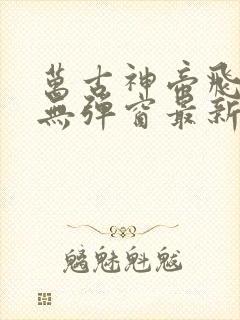 萬古神帝飛
無彈窗最新
魑魅魁魃